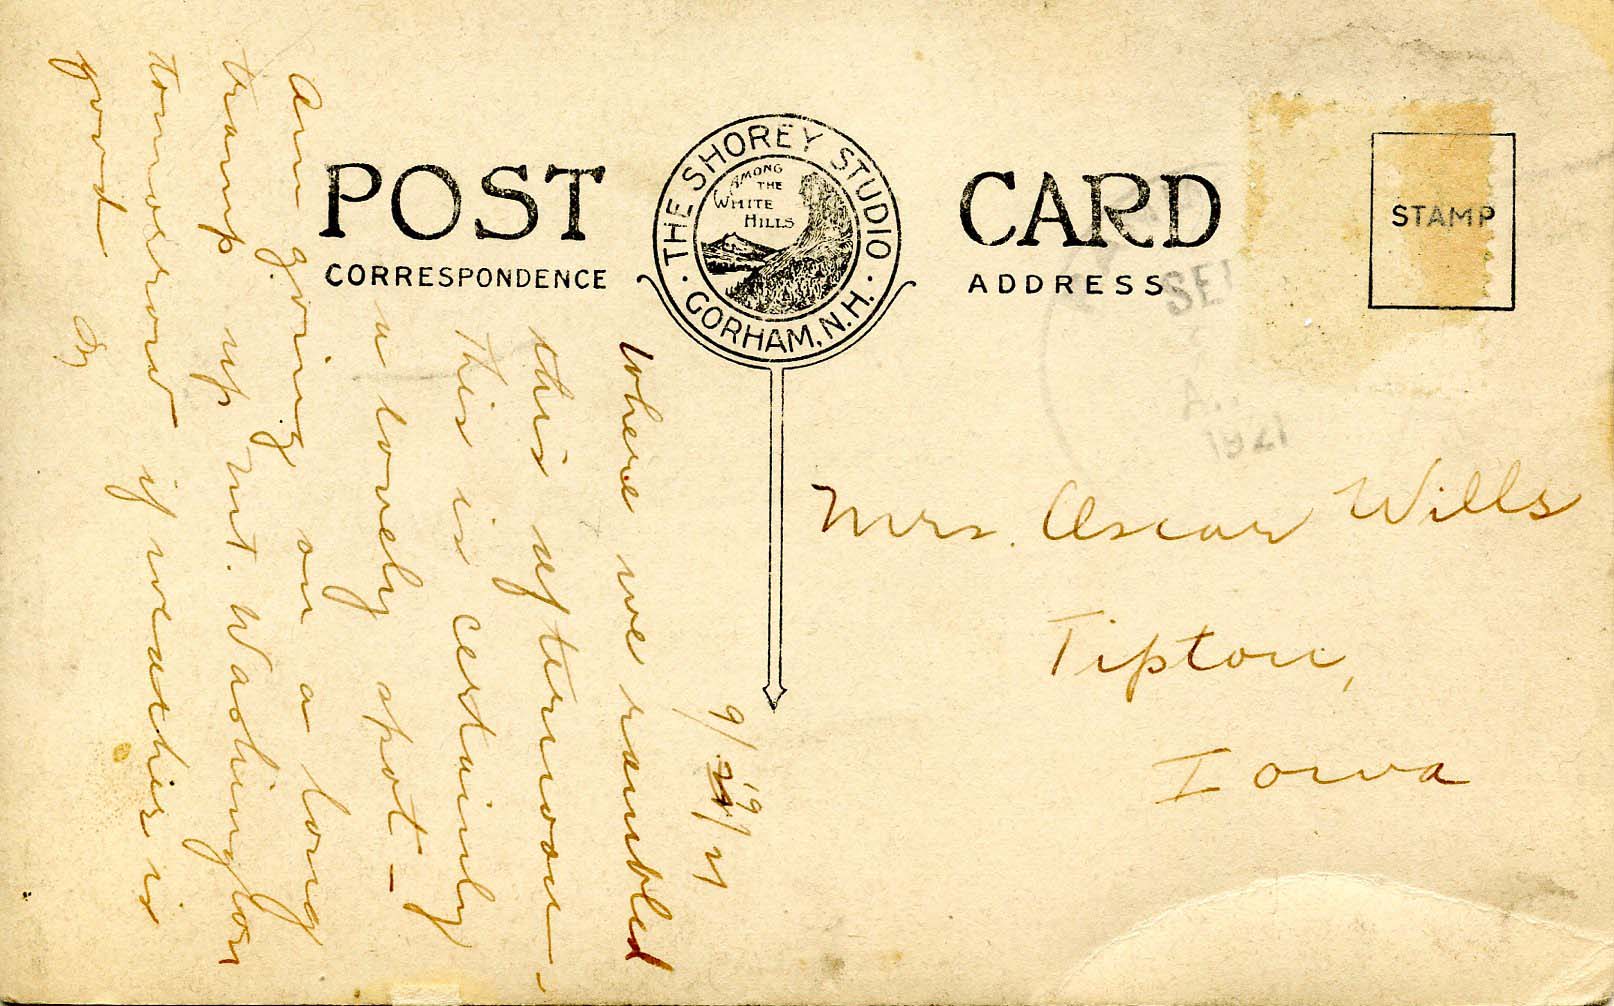 POST CARD
CORRESPONDENCE
ADDRESS
THE SHOREY STUDIO
AMONG
THE
WHITE
HILLS
GORHAM, N.H.
STAMP
SE
A.
1921
9/19/21
Where we rambled
this afternoon -
This is certainly
a lovely spot -
Am going on a long
tramp up Mt. Washington
tomorrow if weather is
good
Mrs. Oscar Wills
Tipton,
Iowa